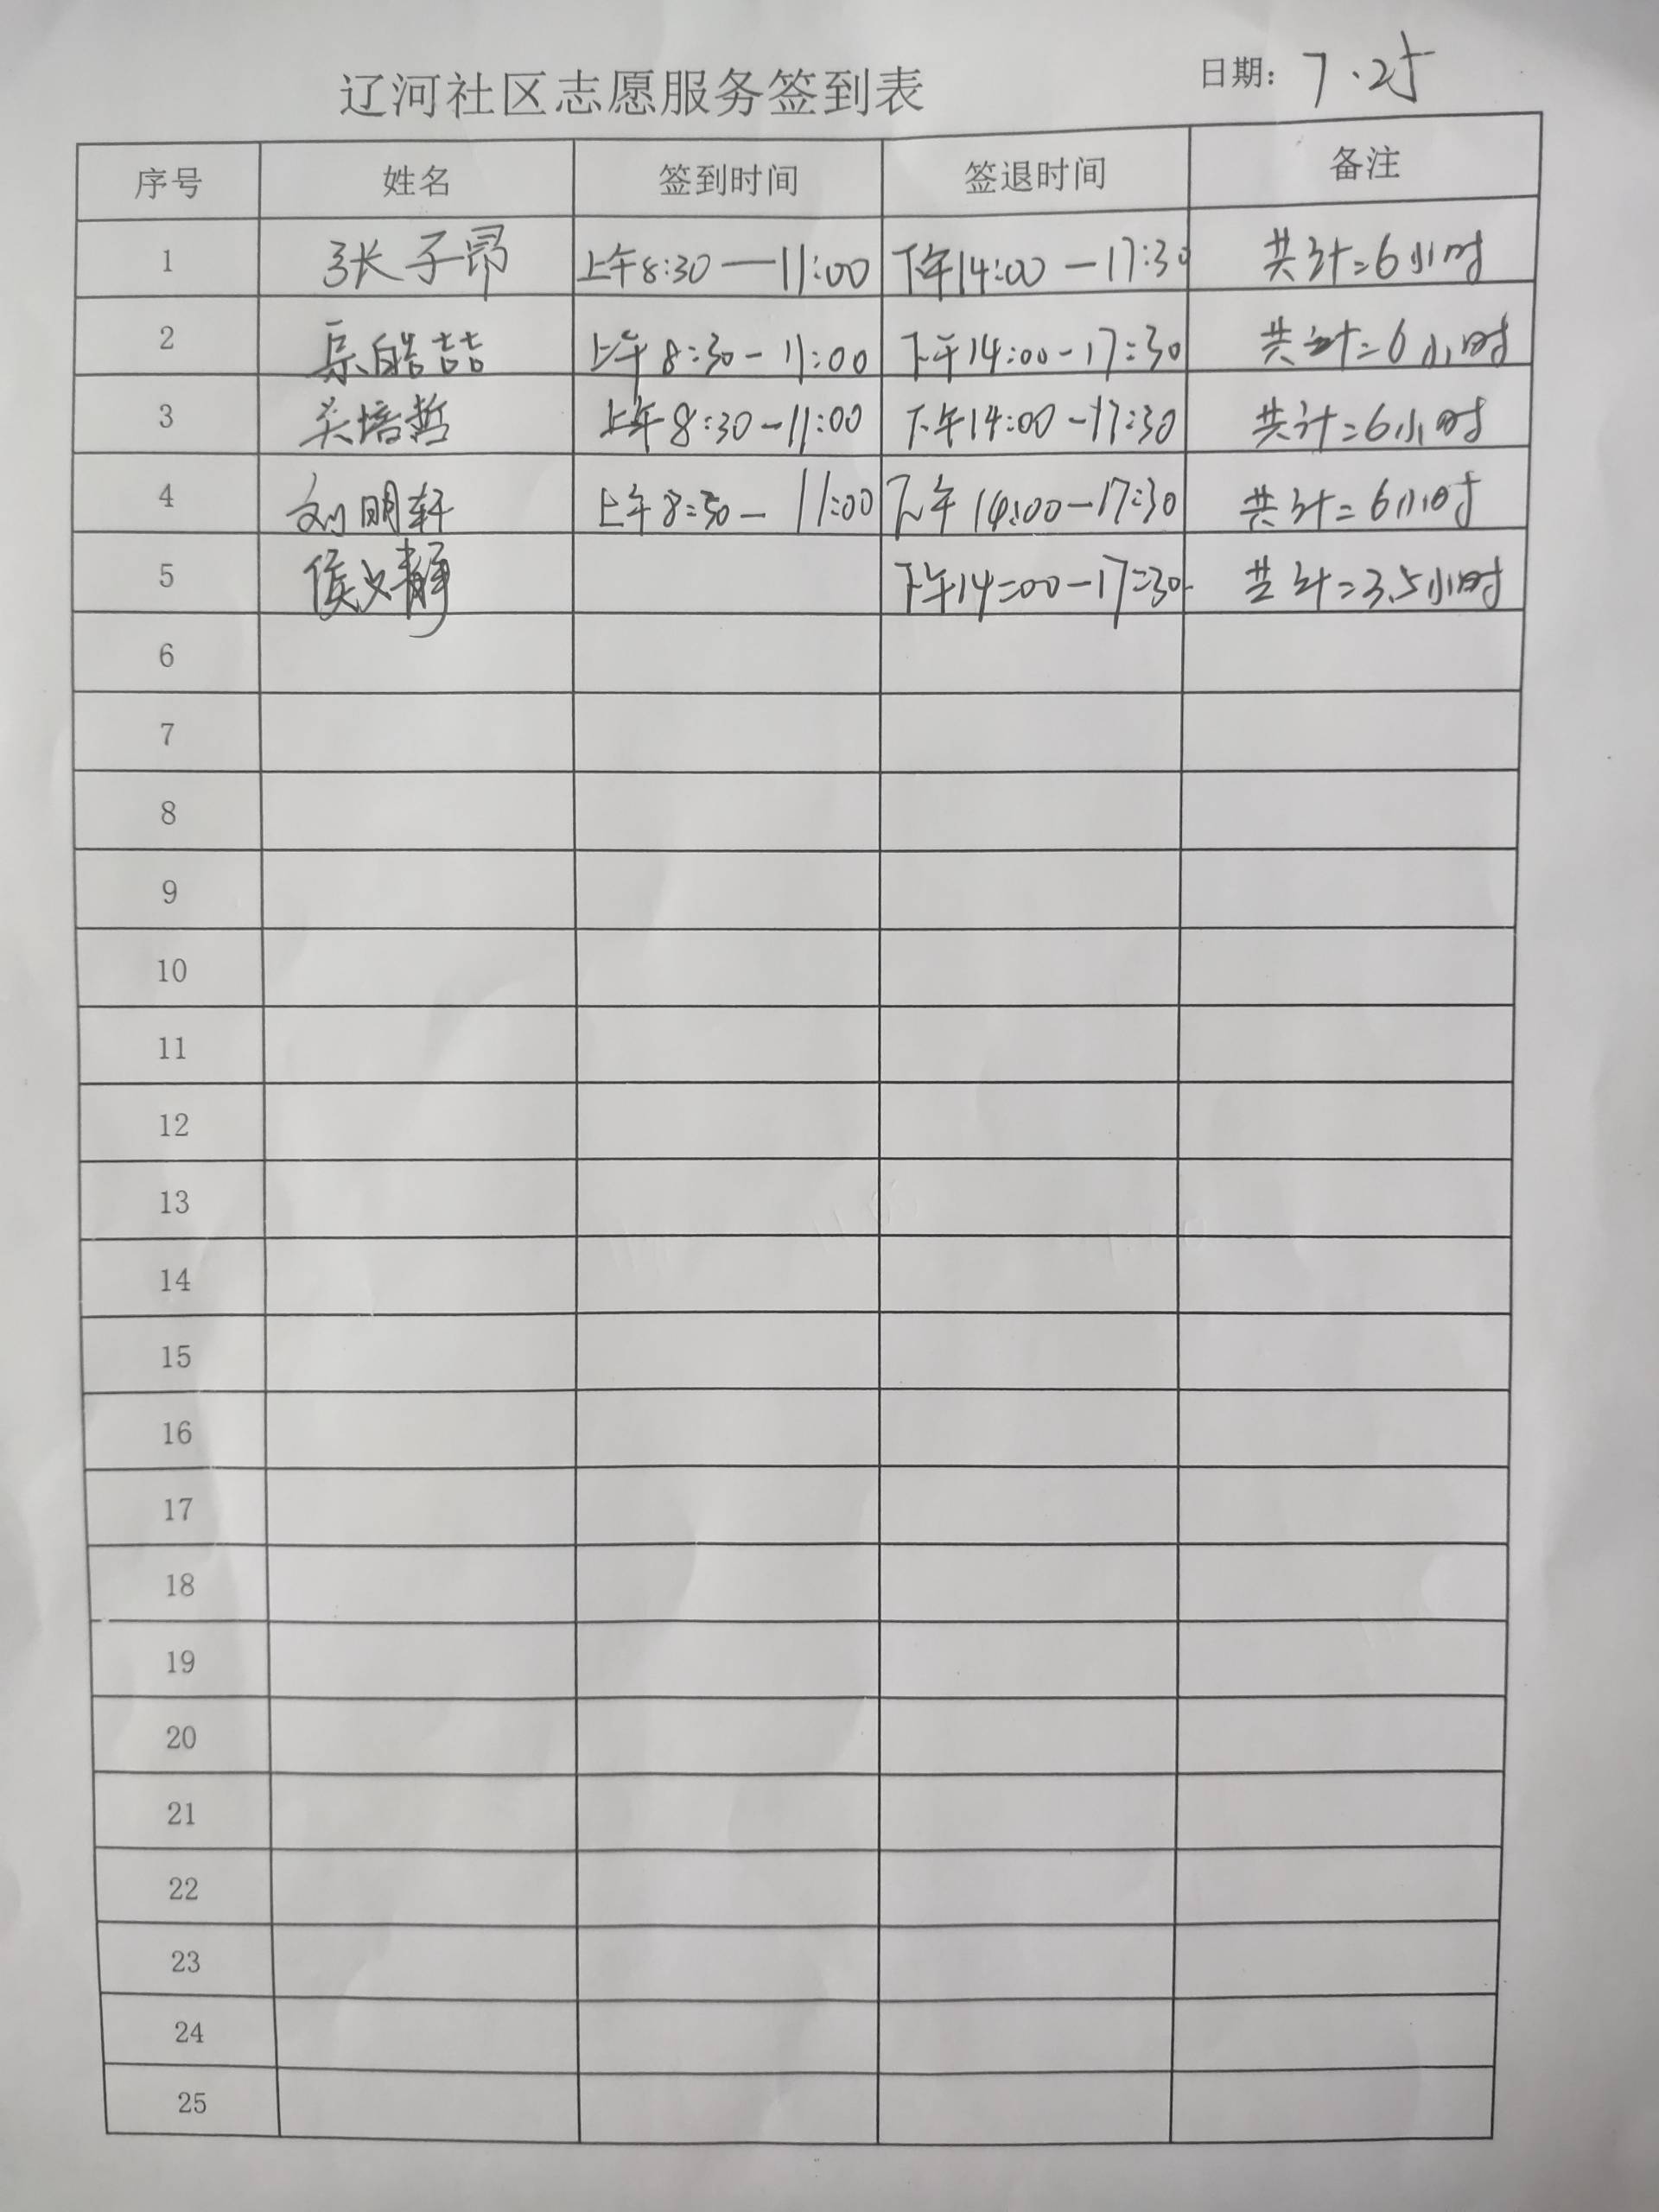 辽河社区志愿服务签到表
日期: 7.25
序号 姓名 签到时间 签退时间 备注
1 张子昂 上午8:30—11:00 下午14:00—17:30 共计=6小时
2 皓喆 上午8:30-11:00 下午14:00-17:30 共计=6小时
3 培哲 上午8:30-11:00 下午14:00-17:30 共计=6小时
4 刘明轩 上午8:30- 11:00 下午14:00-17:30 共计=6小时
5 侯文静 下午14:00-17:30 共计=3.5小时
6
7
8
9
10
11
12
13
14
15
16
17
18
19
20
21
22
23
24
25